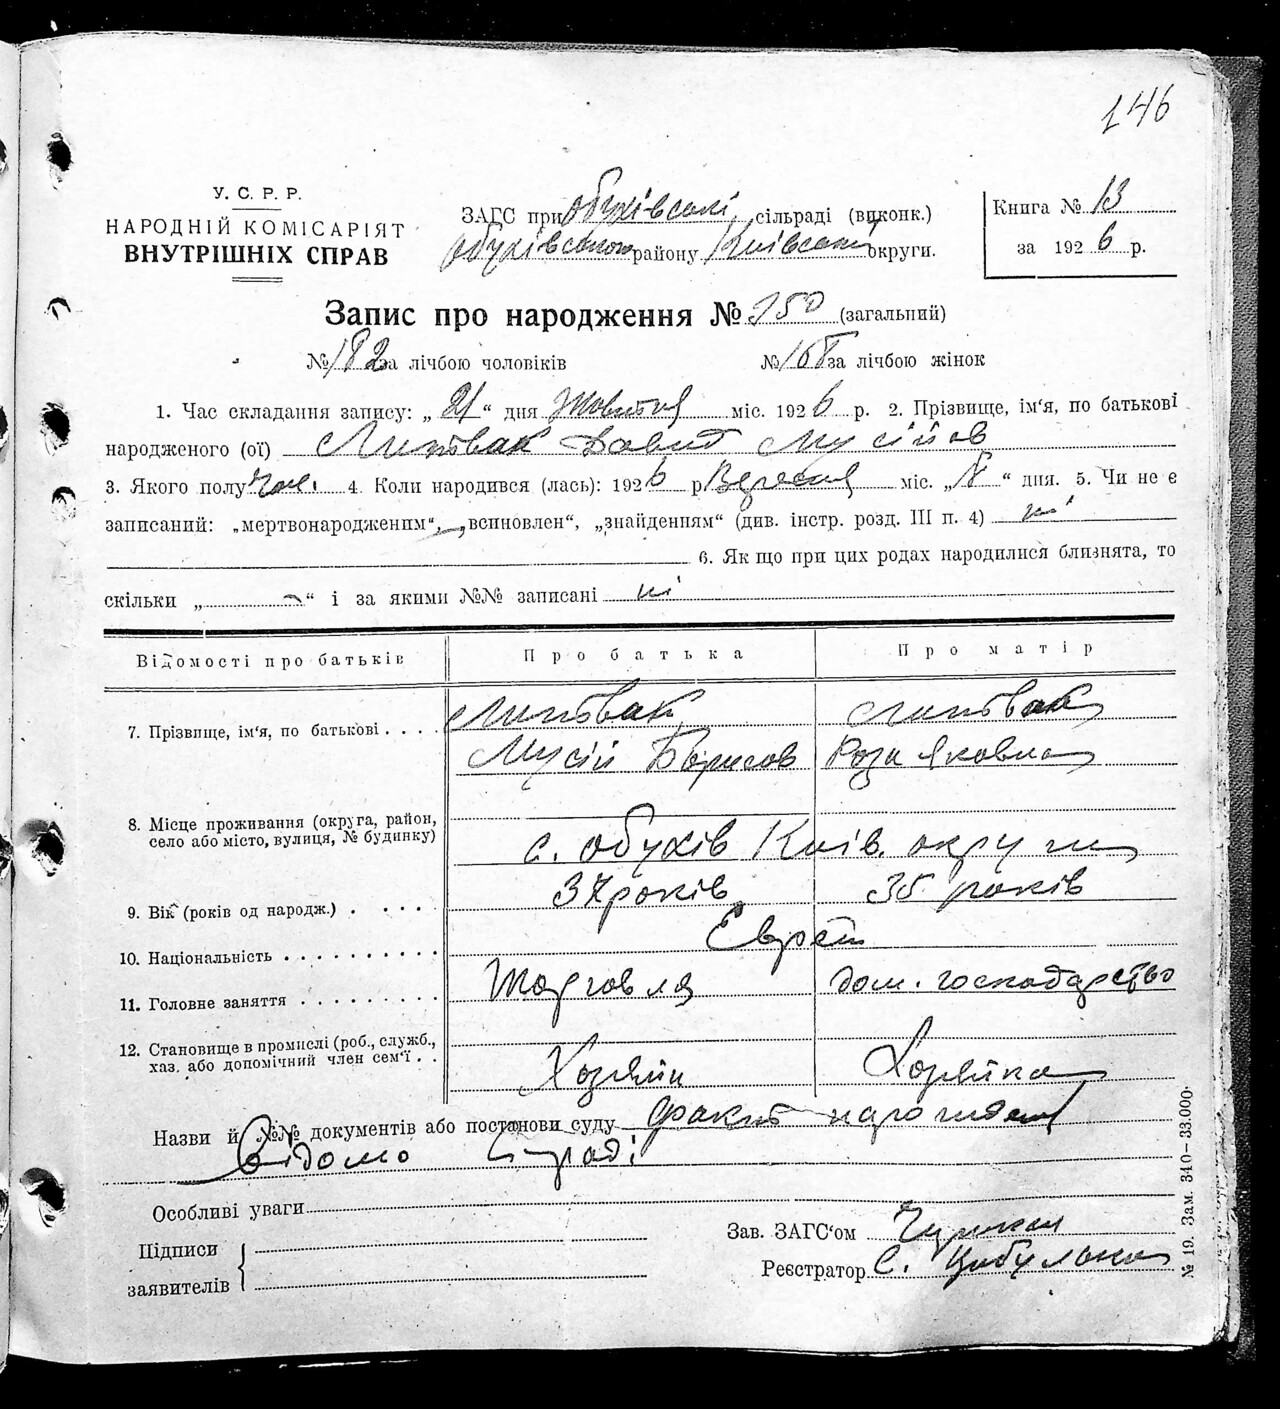 146
У. С. Р. Р.
НАРОДНІЙ КОМІСАРІЯТ
ВНУТРІШНІХ СПРАВ
ЗАГС при Обухівські сільраді (виконк.)
Обухівського району Київської округи.
Книга № 13
за 1926 р.
Запис про народження № 350 (загальний)
№ 182 за лічбою чоловіків № 168 за лічбою жінок
1. Час складання запису: „ 21 “ дня Жовтня міс. 1926 р. 2. Прізвище, ім'я, по батькові
народженого (ої) Литвак Давит Мусійов
3. Якого полу Чол. 4. Коли народився (лась): 1926 р Вересня міс. „ 8 “ дня. 5. Чи не є
записаний: „мертвонародженим“, „всиновлен“, „знайденням“ (див. інстр. розд. III п. 4) ні
6. Як що при цих родах народилися близнята, то
скільки „ - “ і за якими №№ записані ні
Відомості про батьків Про батька Про матір
7. Прізвище, ім'я, по батькові . . . . Литвак Литвак
Мусій Борисов Роза Яковна
8. Місце проживання (округа, район,
село або місто, вулиця, № будинку) с. Обухів Київ. округи
9. Вік (років од народж.) . . . . . 37 років 35 років
10. Національність . . . . . . . . . . Евреї
11. Головне заняття . . . . . . . . . Торговля дом. господарство
12. Становище в промислі (роб., служб.,
хаз. або допомічний член сем'ї . . Хозяїн Хозяйка
Назви й №№ документів або постанови суду факт народження
відомо С/раді
Особливі уваги
Підписи
заявителів
Зав. ЗАГС'ом
Реєстратор С. Цибулько
№ 19. Зам. 340—33.000.